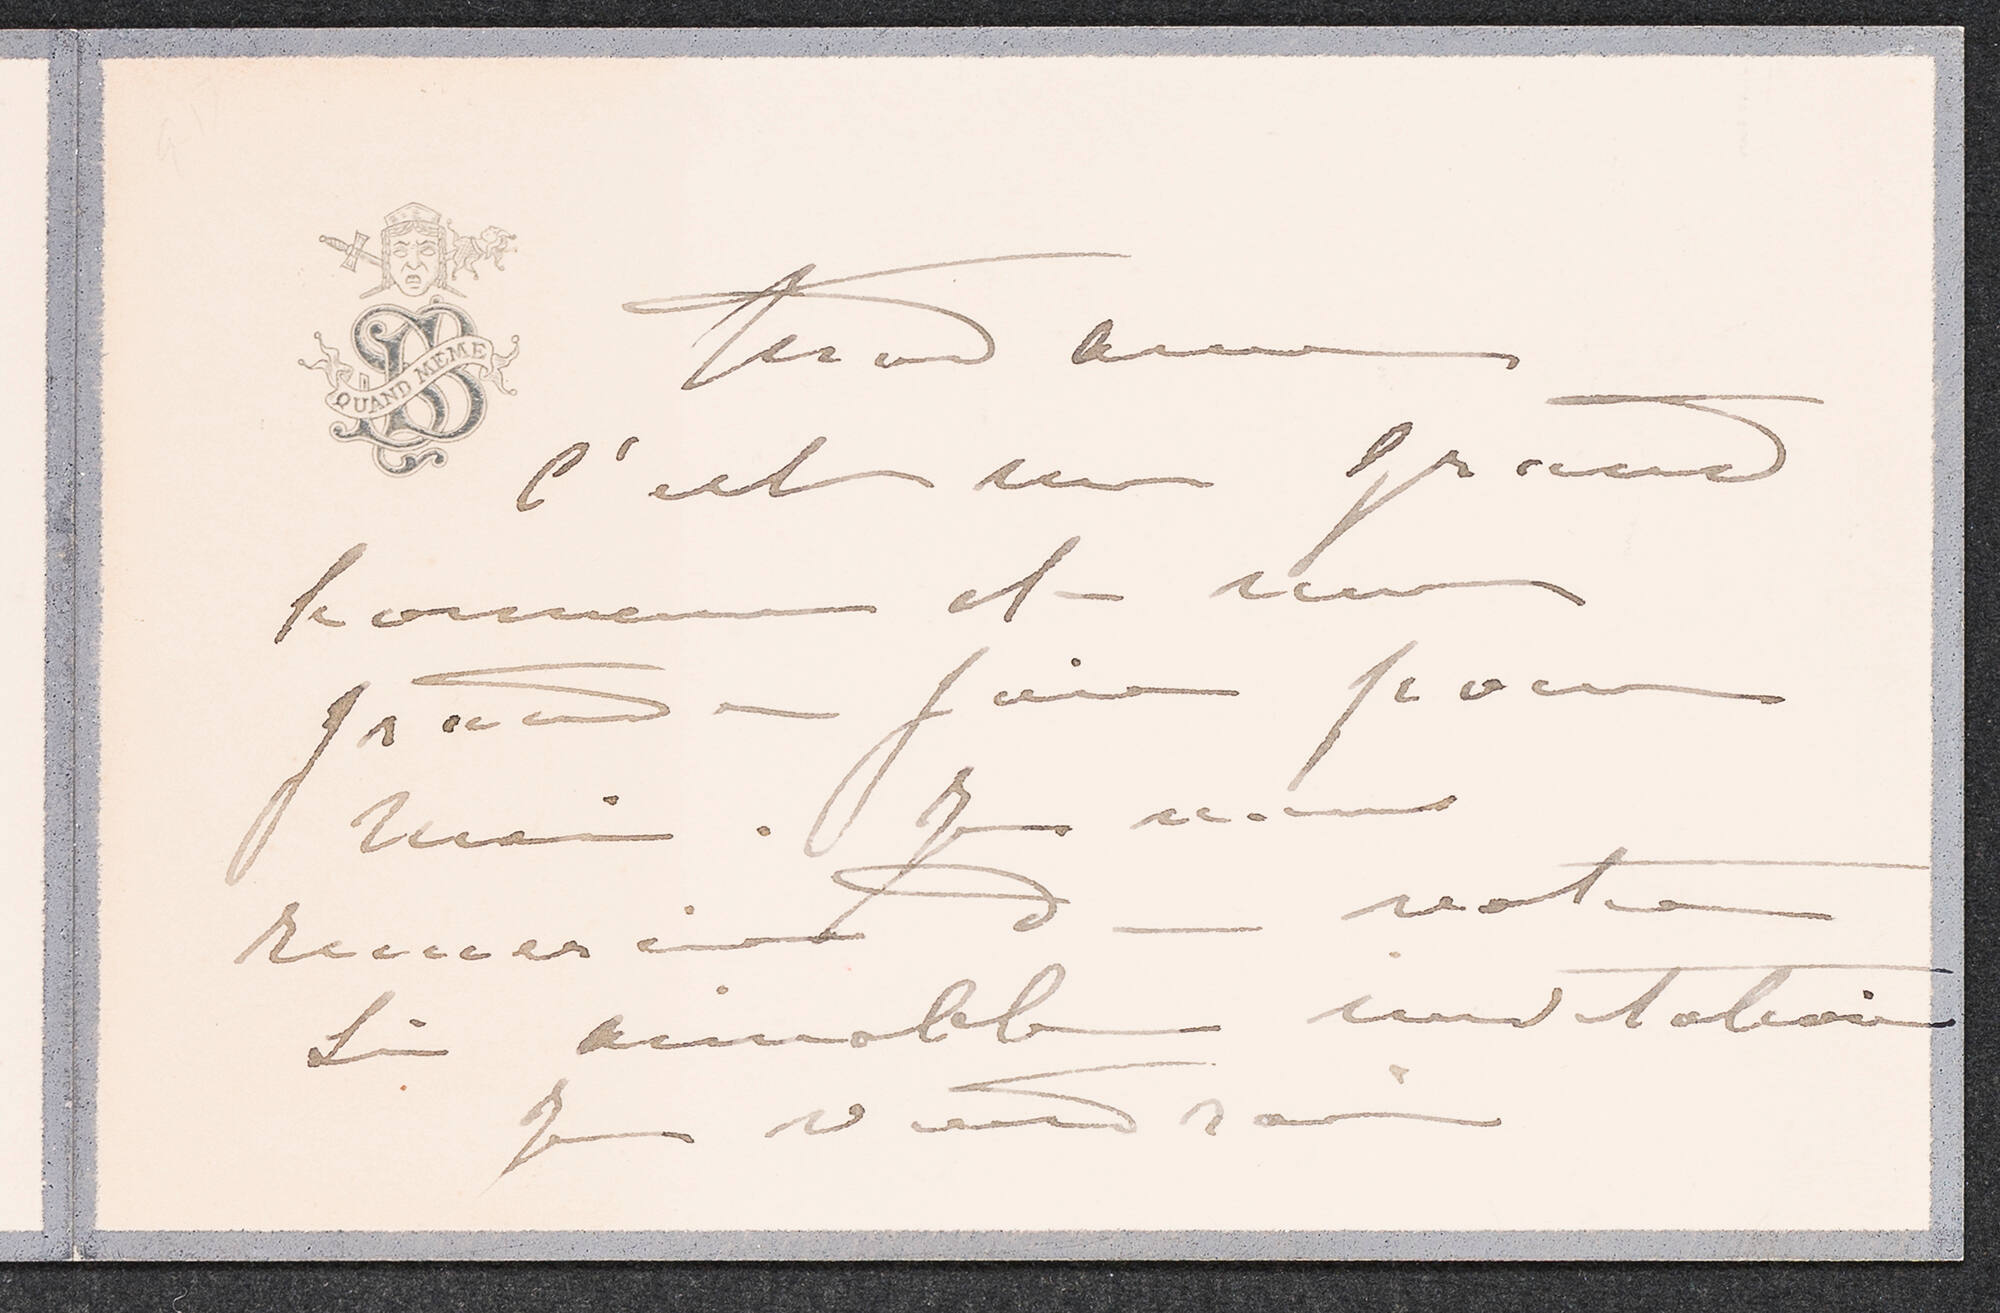 QUAND MÊME
Madame
C'est un grand
honneur et une
grande joie pour
moi. Je vous
remercie de votre
si aimable invitation
Je viendrai